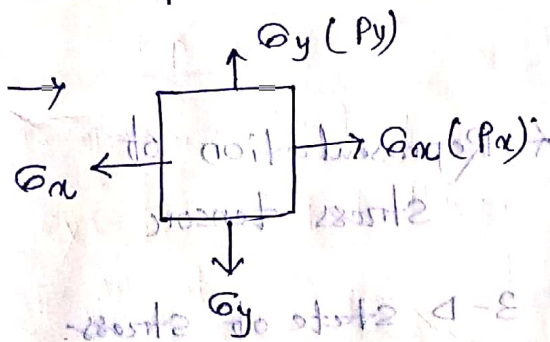 σy (Py)
σx (Px)
σx
σy